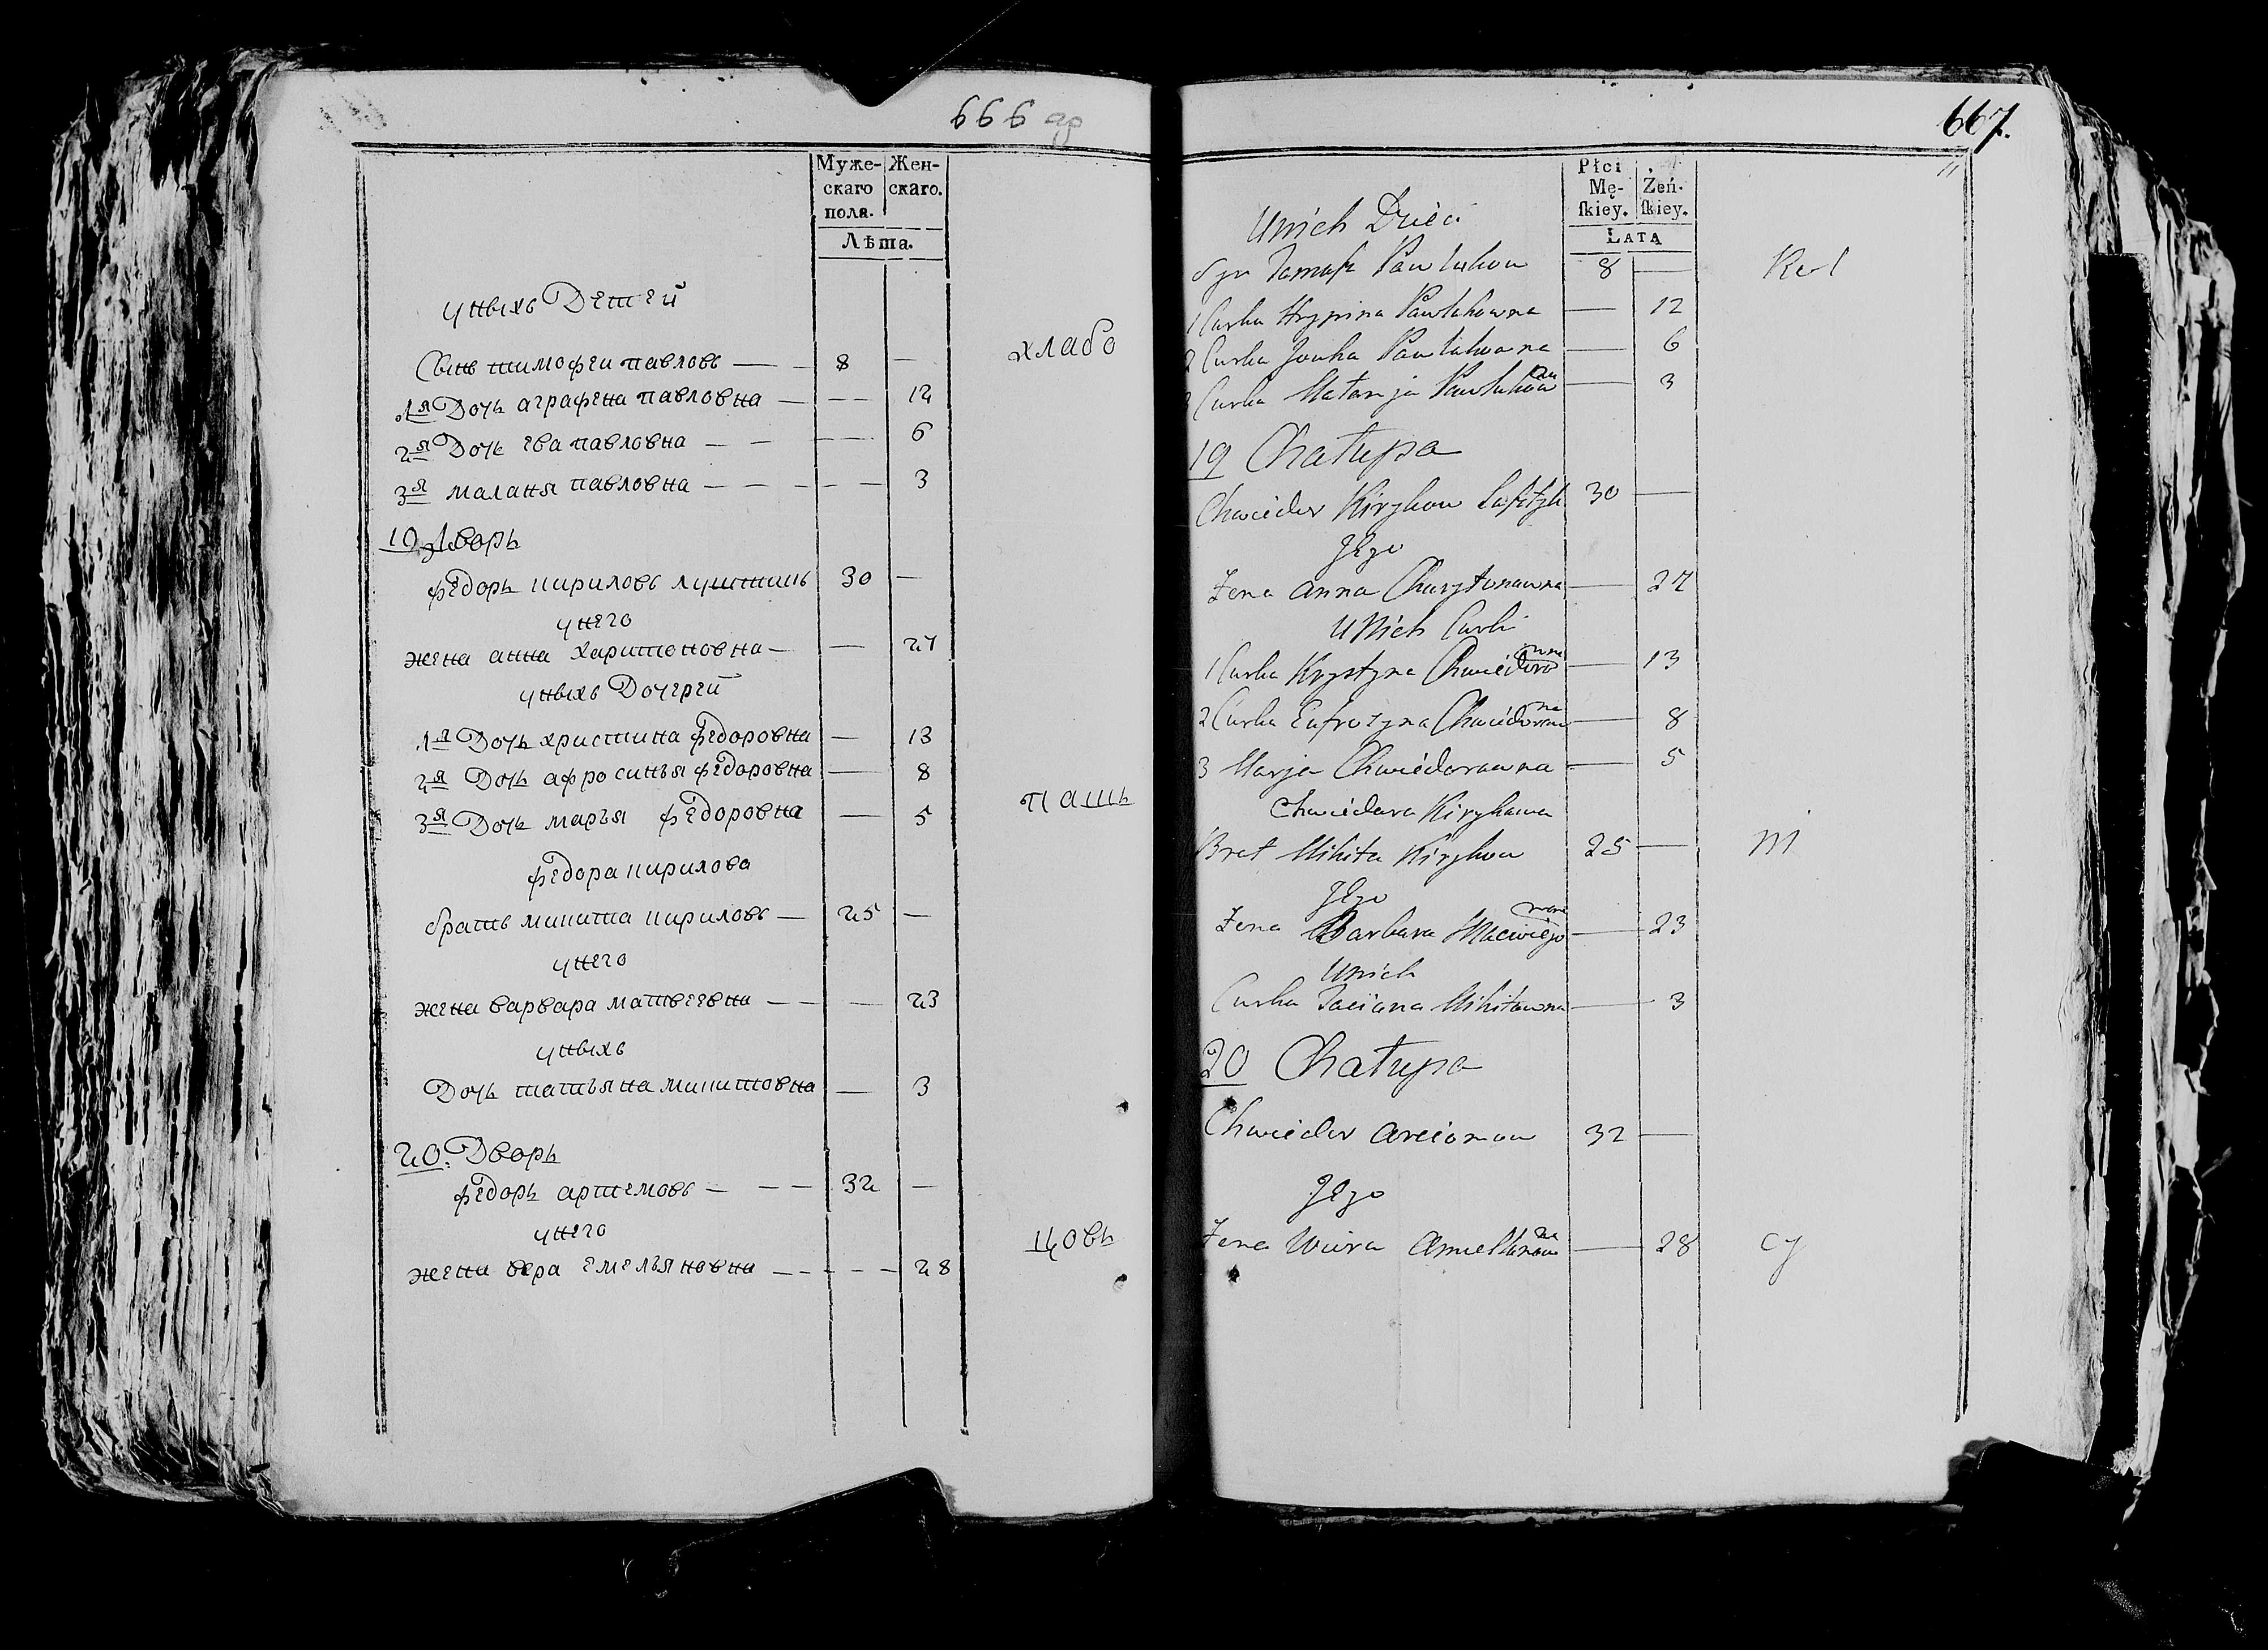 666 др
Муже-
скаго
пола.
Жен-
скаго.
Лѣта.
уныхъ Детей
Сынъ тимофеи павловъ — 8 —
1я Дочь аграфена павловна — 12
2я Дочь ева павловна — 6
3я маланя павловна — 3
хлабо
19 Дворъ
федоръ кириловъ 30 —
унего
жена анна харитоновна — 27
уныхъ Дочерей
1я Дочь христина федоровна — 13
2я Дочь афросинья федоровна — 8
3я Дочь марья федоровна — 5
пашь
федора кирилова
братъ микита кириловъ — 25 —
унего
жена варвара матвеевна — 23
уныхъ
Дочь татьяна микитовна — 3
20. Дворъ
федоръ артемовъ — 32 —
унего
жена вера емельяновна — 28
цовъ
667.
Płci
Mę-
ſkiey.
Żeń-
ſkiey.
LATA
Unich Dzieci
Syn Tamasz Pawlukow 8 —
1 Curka Hrypina Pawlukowna — 12
2 Curka Jouka Pawlukowna — 6
3 Curka Małanja Pawlukowna — 3
19 Chałupa
Chwiedor Kirykow 30 —
Jego
Żena Anna Charytonawna — 27
Unich Curki
1 Curka Krystyna Chwiedorowna — 13
2 Curka Eufrozyna Chwiedorowna — 8
3 Marja Chwiedorowna — 5
Chwiedora Kirykawa
Brat Mikita Kirykow 25 — ni
Jego
Żena Barbara Maciwiejowna — 23
Unich
Curka Taciana Mikitowna — 3
20 Chałupa
Chwiedor Arciomow 32 —
Jego
Żena Wiera Amiellanowna — 28 cy